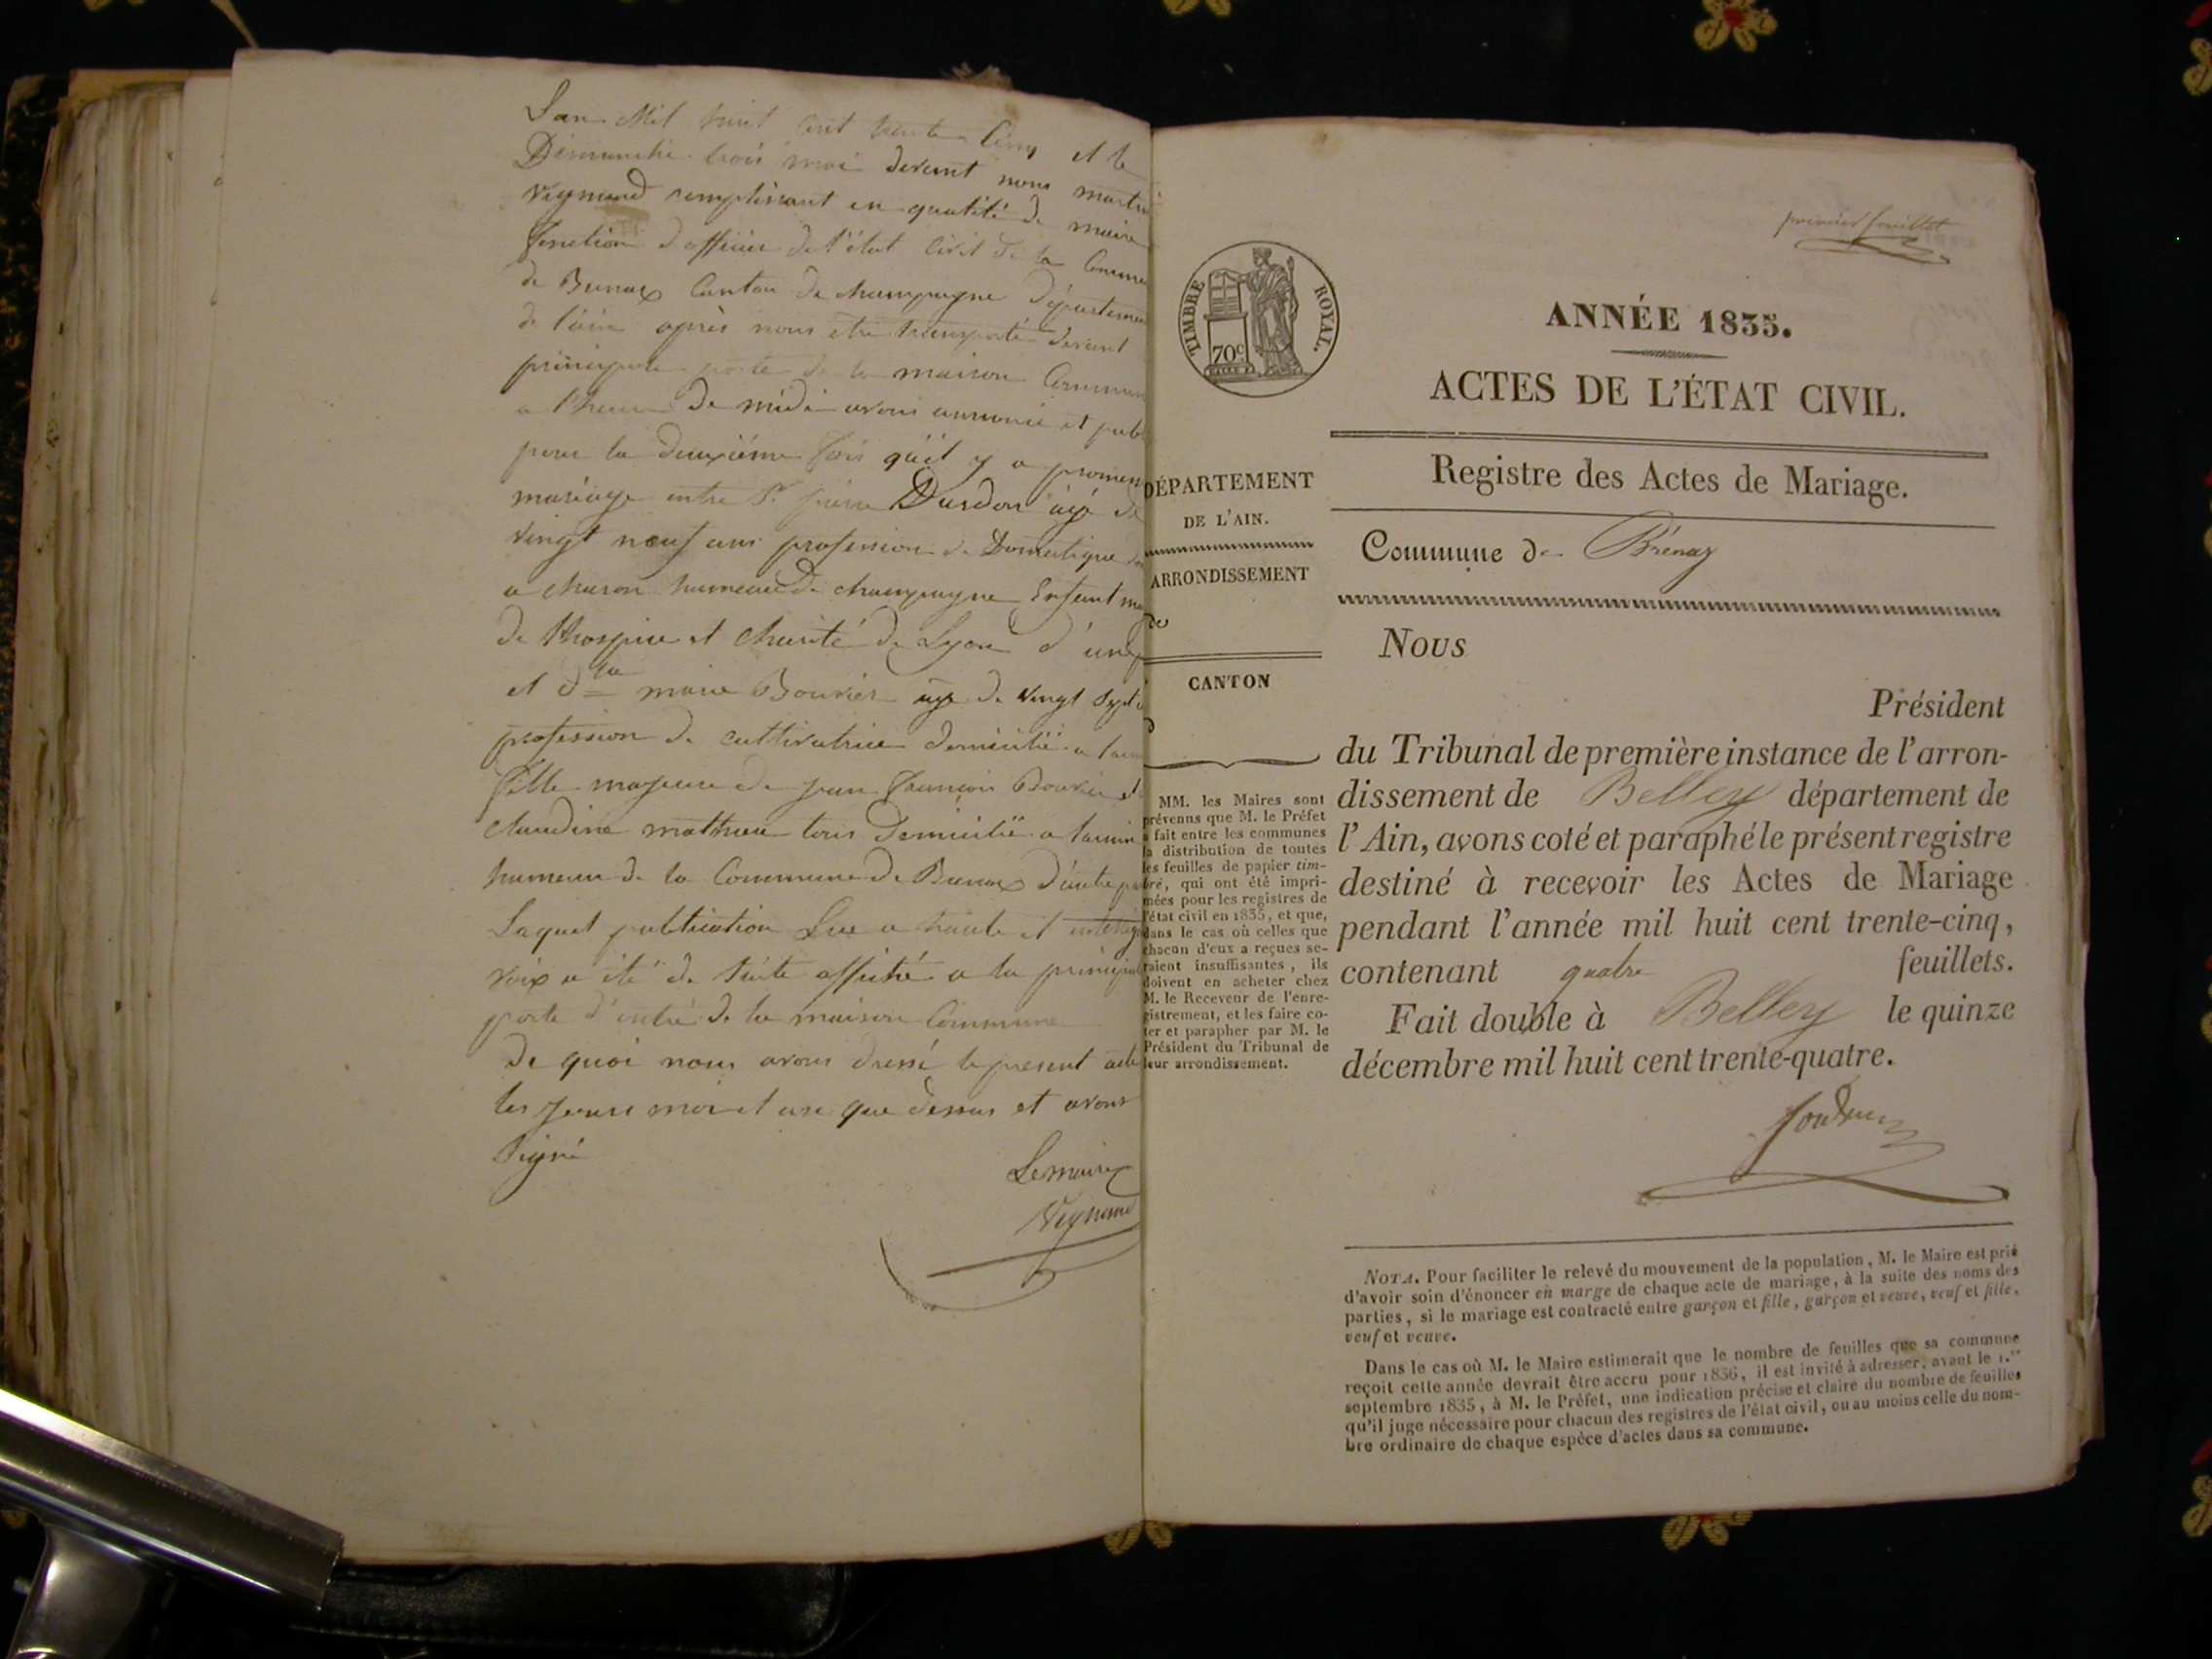 Lan Mil huit cent trente Cinq et le
Dimanche trois mai devant nous martin
Veymand remplissant en qualité de maire
fonction d'officier de l'état Civil de la Comm
de Brenaz Canton de champagne Départemen
de l'ain après nous etre transporté devant
principale porte de la maison Commun
a l'heure De midi avons annoncé et pub
pour la deuxiéme fois qu'il y a promess
mariage entre Sr pierre Dusdon âgé de
vingt neuf ans profession de Domestique
a chason hameau de champagne Enfant ma
de l'hospice et charité de Lyon d'une p
et dlle marie Bouvier age de vingt sept
profession de cultivatrice domicilié a
fille majeure de jean francois Bouvier et
claudine matthieu tous domicilié a
hameau de la Commune de Brenaz D'autre pa
Laquel publication Lue a haute et intelligi
voix a été de suite affiché a la principal
porte d'entré de la maison Commune
De quoi nous avons dressé le present acte
les jours moi et an que dessus et avons
signé
Lemaire
Veymand
premier feuillet
TIMBRE ROYAL.
70c
ANNÉE 1835.
ACTES DE L'ÉTAT CIVIL.
Registre des Actes de Mariage.
Commune de Brénaz
DÉPARTEMENT
DE L'AIN.
ARRONDISSEMENT
de
CANTON
d
MM. les Maires sont
prévenus que M. le Préfet
a fait entre les communes
la distribution de toutes
les feuilles de papier tim-
bré, qui ont été impri-
mées pour les registres de
l'état civil en 1835, et que,
dans le cas où celles que
chacun d'eux a reçues se-
raient insuffisantes, ils
doivent en acheter chez
M. le Receveur de l'enre-
gistrement, et les faire co-
ter et parapher par M. le
Président du Tribunal de
leur arrondissement.
Nous
Président
du Tribunal de première instance de l'arron-
dissement de Belley département de
l'Ain, avons coté et paraphé le présent registre
destiné à recevoir les Actes de Mariage
pendant l'année mil huit cent trente-cinq,
contenant quatre feuillets.
Fait double à Belley le quinze
décembre mil huit cent trente-quatre.
NOTA. Pour faciliter le relevé du mouvement de la population, M. le Maire est prié
d'avoir soin d'énoncer en marge de chaque acte de mariage, à la suite des noms des
parties, si le mariage est contracté entre garçon et fille, garçon et veuve, veuf et fille,
veuf et veuve.
Dans le cas où M. le Maire estimerait que le nombre de feuilles que sa commune
reçoit cette année devrait être accru pour 1836, il est invité à adresser, avant le 1.er
septembre 1835, à M. le Préfet, une indication précise et claire du nombre de feuilles
qu'il juge nécessaire pour chacun des registres de l'état civil, ou au moins celle du nom-
bre ordinaire de chaque espèce d'actes dans sa commune.